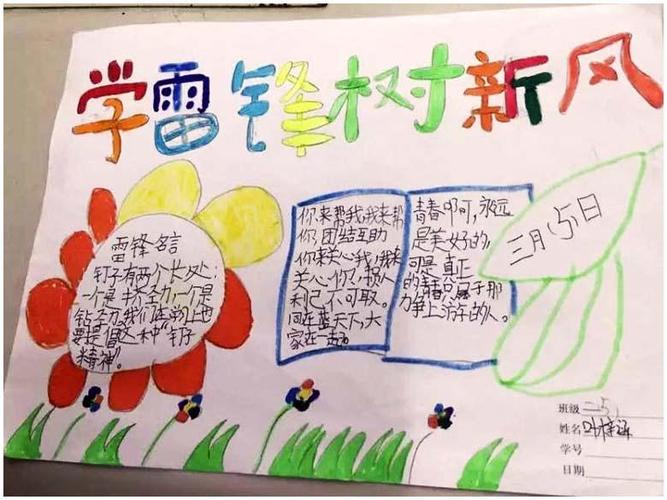 学雷锋树新风
雷锋名言
钉子有两个长处:
一个是挤劲,一个是
钻劲,我们在学习上也
要提倡这种“钉子
精神”。
你来帮我,我来帮
你,团结互助
你来关心我,我来
关心你,损人
利己不可取。
同在蓝天下,大
家在一起。
青春啊,永远
是美好的,
可是真正
的青春只属于那
力争上游的人。
三月五日
班级 二5
姓名 叶
学号
日期